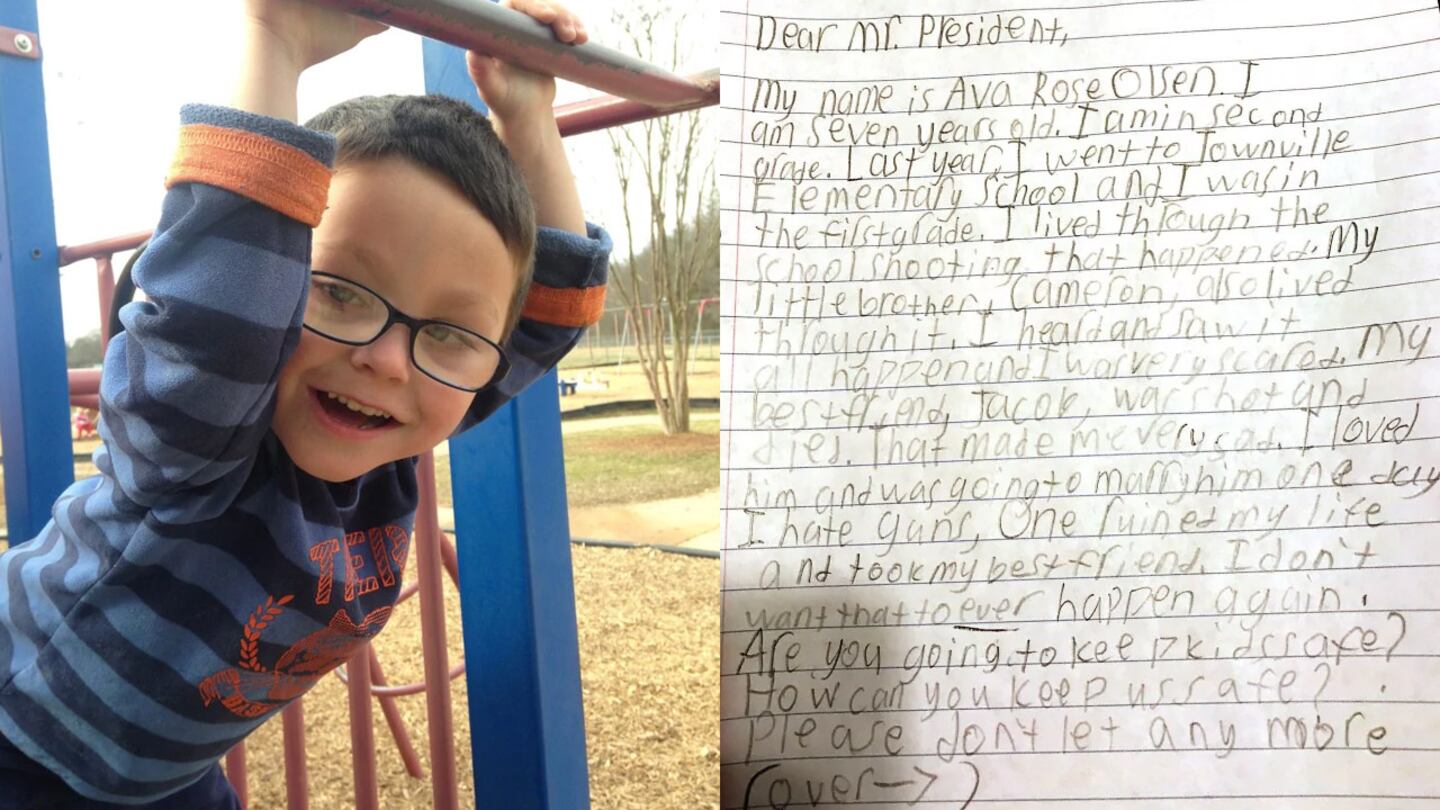 TEIP
Dear Mr. President,
My name is Ava Rose Olsen. I
am seven years old. I am in second
grade. Last year, I went to Townville
Elementary School and I was in
the first grade. I lived through the
school shooting that happened. My
little brother, Cameron, also lived
through it. I heard and saw it
all happen and I was very scared. My
best friend, Jacob, was shot and
died. That made me very sad. I loved
him and was going to marry him one day
I hate guns, One ruined my life
and took my best friend. I don't
want that to ever happen again.
Are you going to keep kids safe?
How can you keep us safe?
Please don't let any more
(over→)